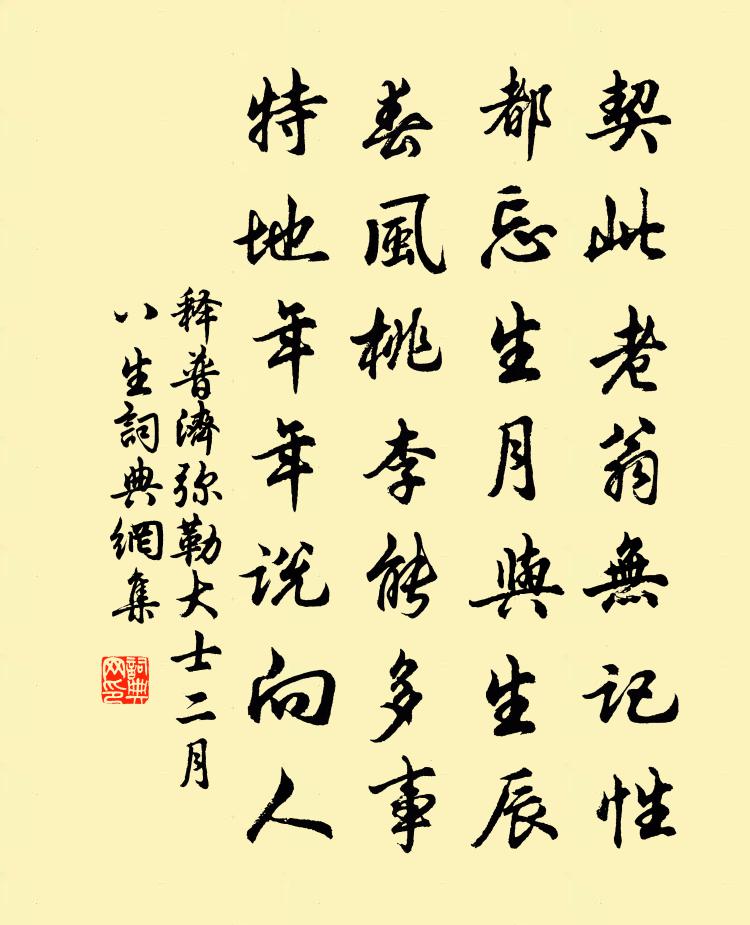 契此老翁無記性
都忘生月與生辰
春風桃李能多事
特地年年説向人
释普濟弥勒大士二月
八生詞典網集
詞典网印